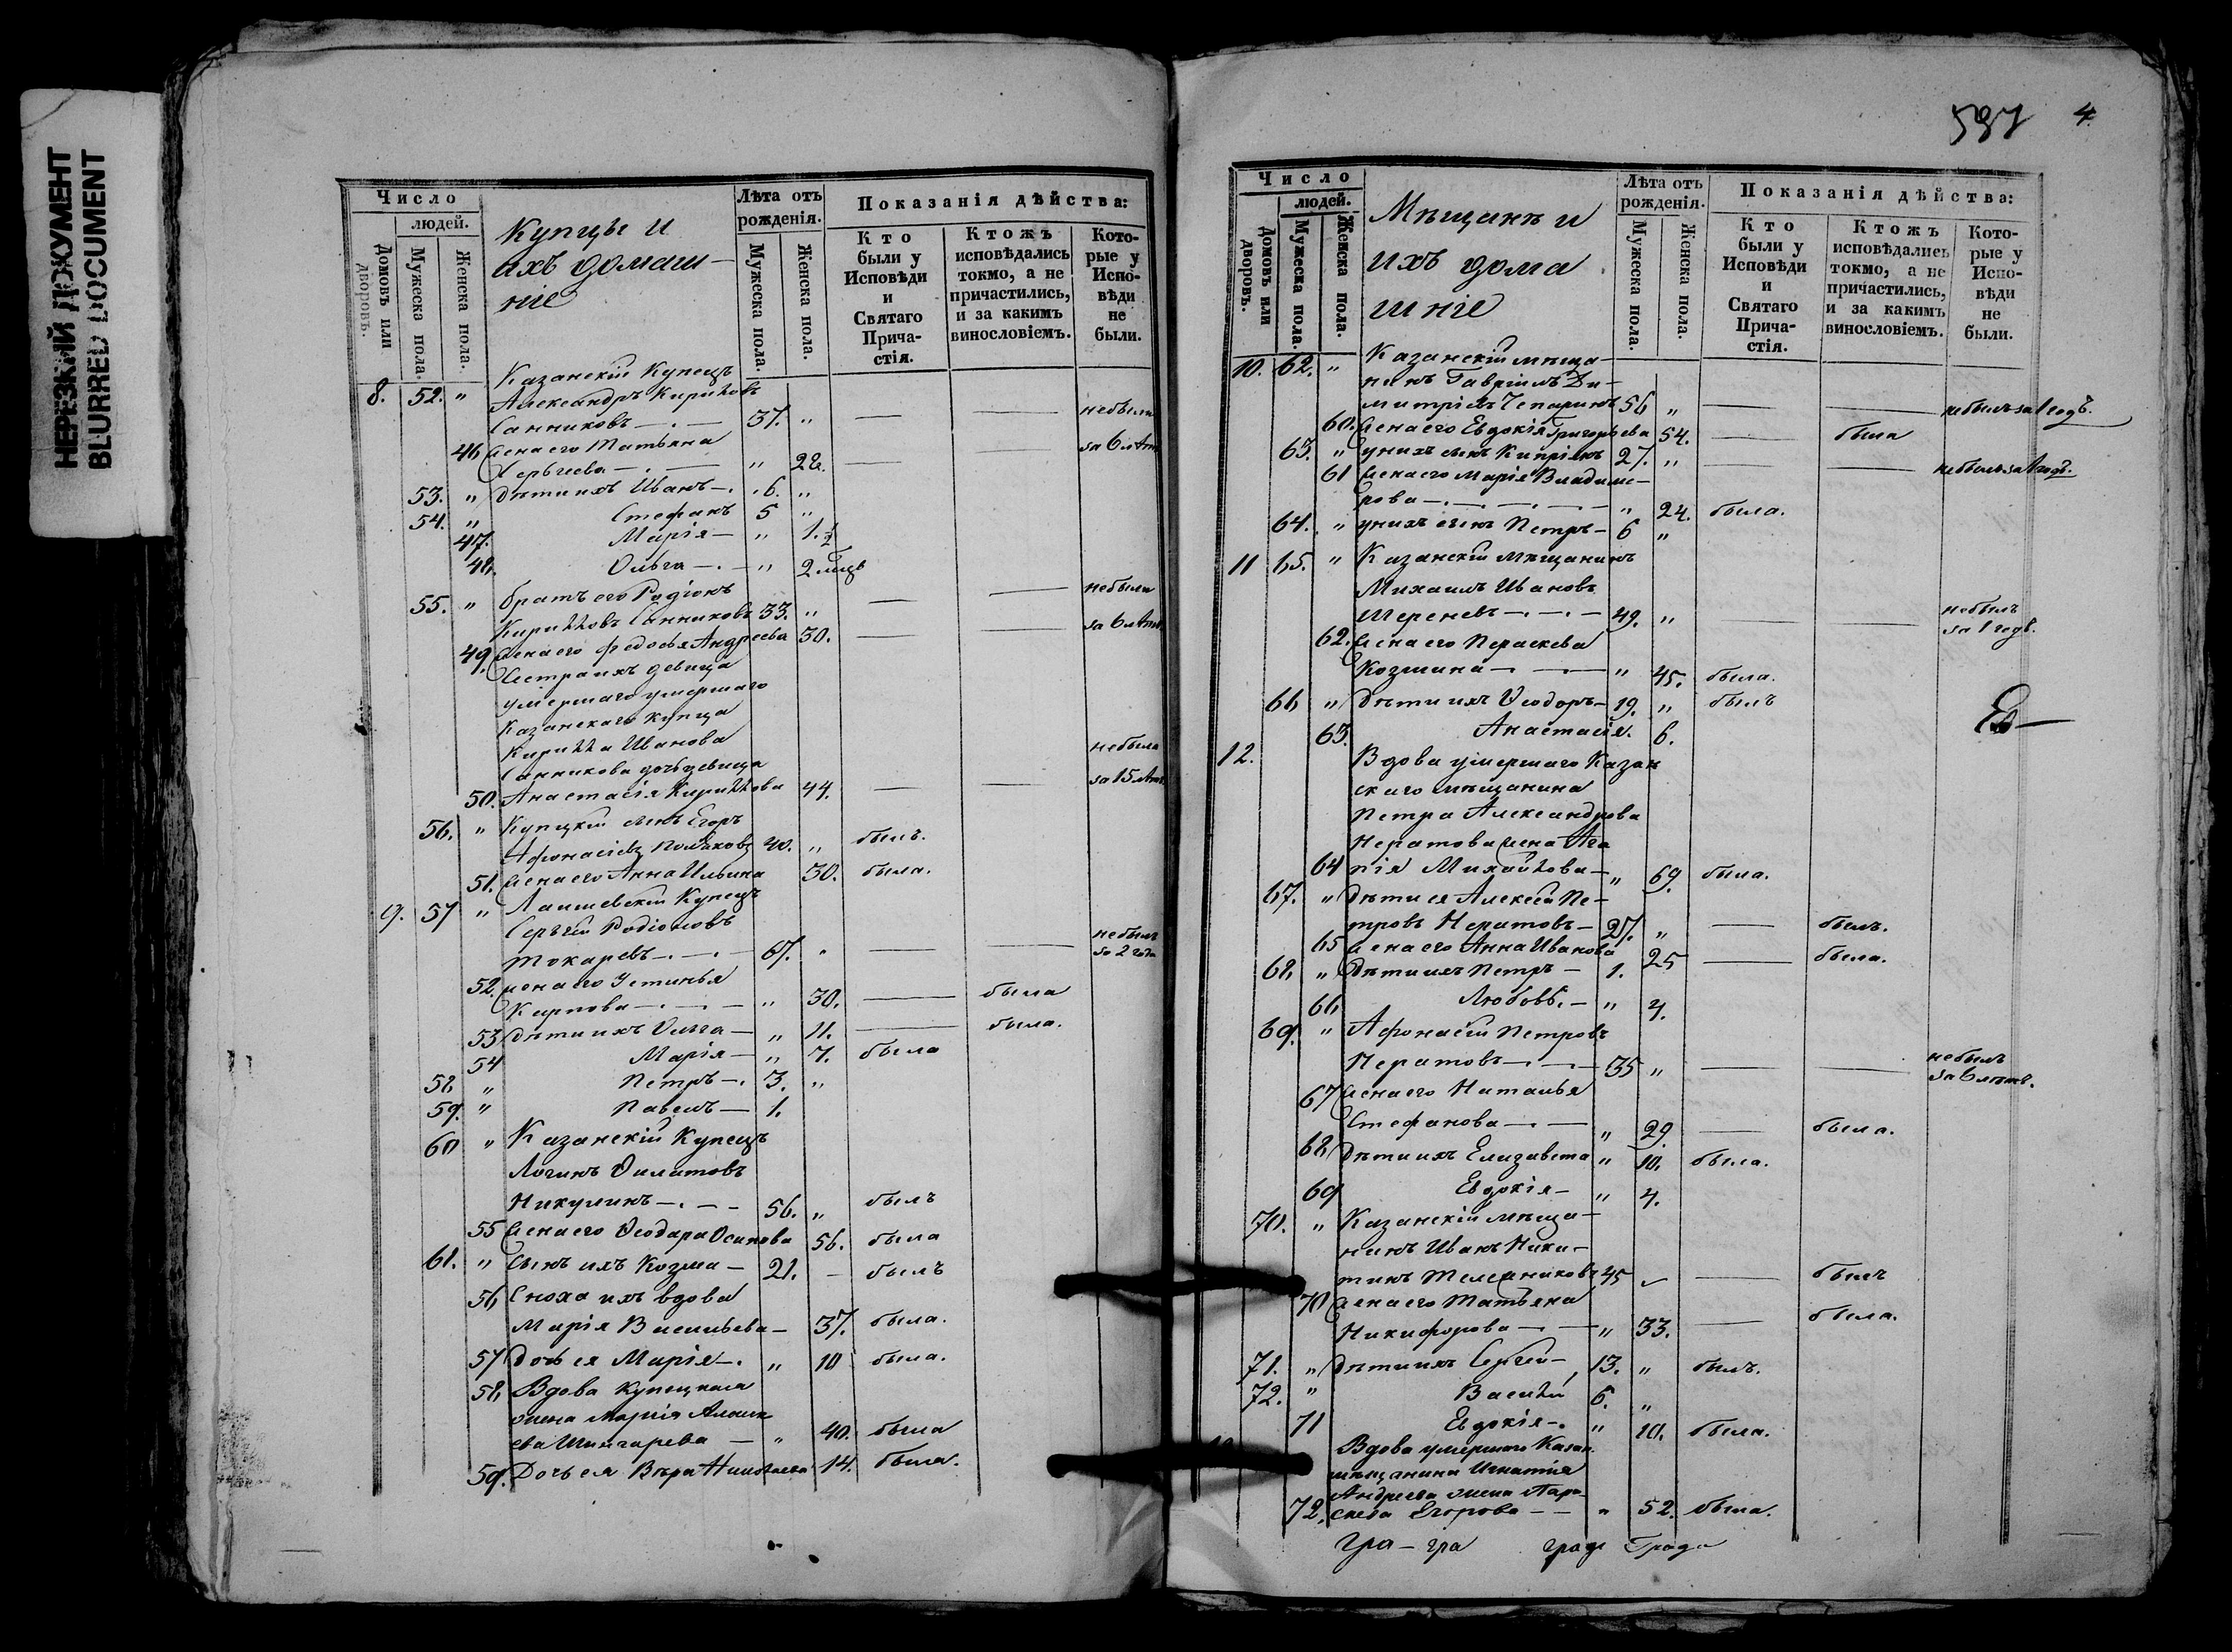 НЕРЕЗКИЙ ДОКУМЕНТ
BLURRED DOCUMENT
Число
людей.
Домовъ или дворовъ.
Мужеска пола.
Женска пола.
Купцы и
ихъ домаш-
ніе
Лѣта отъ
рожденія.
Мужеска пола.
Женска пола.
Показанія дѣйства:
Кто
были у
Исповѣди
и
Святаго
Прича-
стія.
Ктожъ
исповѣдались
токмо, а не
причастились,
и за какимъ
винословіемъ.
Кото-
рые у
Испо-
вѣди
не
были.
Казанскій Купецъ
8. 52. " Александръ Кирилловъ
Санниковъ 37. " — — небыли
46 жена его Татьяна за 6 лѣтъ
Сергѣева " 28.
53. " Дѣти ихъ Иванъ 6. "
54. " Стефанъ 5 "
47. Марія " 1.½
48. Ольга " 2 мцъ
55. " братъ его Родіонъ небыли
Кирилловъ Санниковъ 33. " за 6 лѣтъ
49. жена его Федосья Андреева 30.
Сестра ихъ девица
умершаго умершаго
Казанскаго купца
Кирилла Иванова небыла
Санникова дочь девица за 15 лѣтъ
50. Анастасія Кириллова 44.
56. " Купецкій сынъ Егоръ
Афонасіевъ Поляковъ 40. " былъ.
51. жена его Анна Ильина 30. была.
9. 57 " Лаишевскій Купецъ
Сергѣй Родіоновъ небылъ
Токаревъ 67. " за 2 года
52. жена его Устинья
Карпова " 30. — была
53 Дѣти ихъ Ольга " 11. — была.
54 Марія " 7. была
58 " Петръ 3. "
59. " Павелъ 1.
60 " Казанскій Купецъ
Логинъ Филатовъ
Никулинъ 56. " былъ
55 жена его Феодара Осипова 56. была
61. " Сынъ ихъ Козма 21. — былъ
56 Сноха ихъ вдова
Марія Васильева 37. была.
57 Дочь ея Марія " 10 была.
58 Вдова купецкая
жена Марія Алексе
ева " 40. была
59. Дочь ея Вѣра Николаева 14. была.
597 4.
Число
людей.
Домовъ или дворовъ.
Мужеска пола.
Женска пола.
Мѣщанъ и
ихъ дома
шніе
Лѣта отъ
рожденія.
Мужеска пола.
Женска пола.
Показанія дѣйства:
Кто
были у
Исповѣди
и
Святаго
Прича-
стія.
Ктожъ
исповѣдались
токмо, а не
причастились,
и за какимъ
винословіемъ.
Кото-
рые у
Испо-
вѣди
не
были.
10. 62. " Казанскій мѣща-
нинъ Гавріилъ Ди-
митріевъ Чепаринъ 56 " — — небылъ за 1 годъ.
60. жена его Евдокія Григорьева 54. — была
63. " у нихъ сынъ Кипріянъ 27. " — — небылъ за 1 годъ.
61 жена его Марія Владими-
рова " 24. была.
64. " у нихъ сынъ Петръ 6 "
11 65. " Казанскій Мѣщанинъ
Михаилъ Ивановъ
49. " — — небылъ за 1 годъ.
62. жена его Параскева
Козмина " 45. была.
66 " Дѣти ихъ Феодоръ 19. " былъ
63. Анастасія. 6.
12. Вдова умершаго Казан
скаго мѣщанина
Петра Александрова
Нератова жена Ага
64 пія Михайлова " 69. была.
67. " Дѣти ея Алексѣй Пе-
тровъ Нератовъ 27. " — былъ.
65 жена его Анна Иванова 25 — была.
68. " Дѣти ихъ Петръ 1.
66 Любовь. " 4.
69. " Афонасій Петровъ
Нератовъ 35 " — — небылъ за 6 лѣтъ.
67 жена его Наталья
Стефанова " 29. — была.
68 Дѣти ихъ Елизавета " 10. была.
69 Евдокія " 4.
70. " Казанскій мѣща-
нинъ Иванъ Ники-
тинъ 45 — былъ
70 жена его Татьяна
Никифорова " 33. — была.
71. " Дѣти ихъ Сергѣй 13. " былъ.
72. " Василій 6. "
71 Евдокія " 10. была.
Вдова умершаго Казан.
мѣщанина Игнатія
Андреева жена Пара-
72. скева Егорова " 52. была.
гра - гра град Града